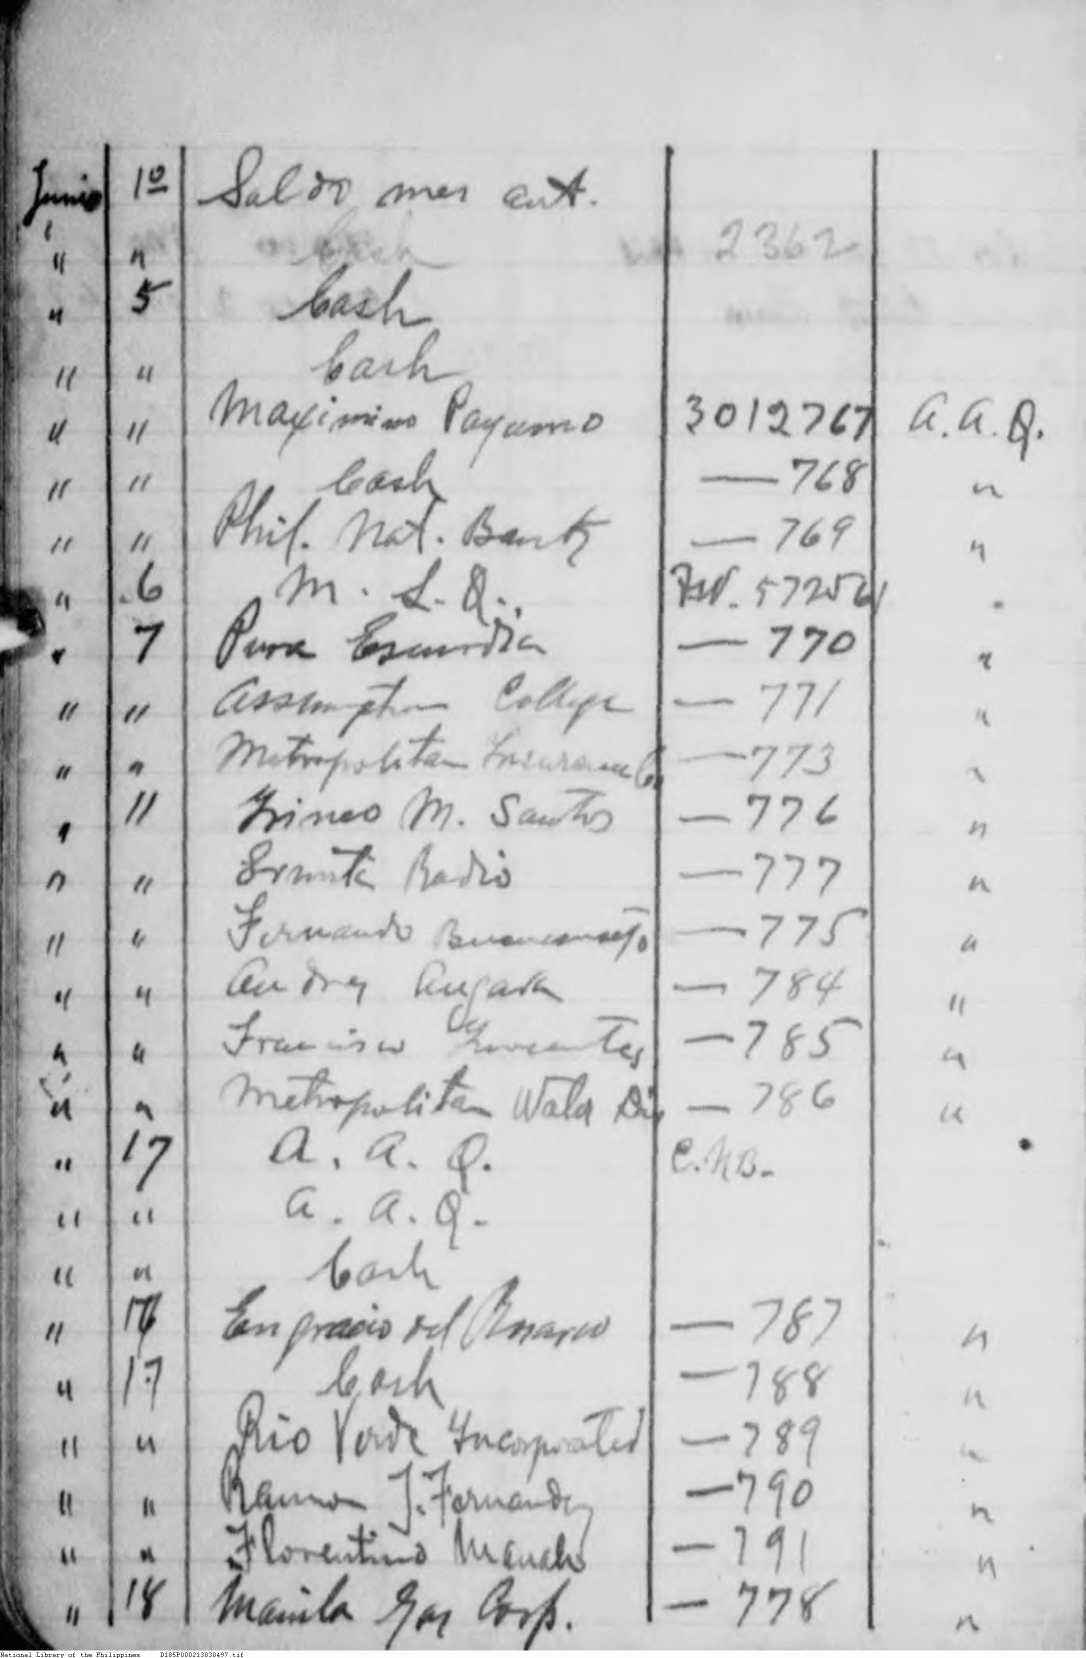 Junio 1º Saldo mes ant.
" " Cash 2362
" 5 Cash
" " Cash
" " Maximino Payumo 3012767 A. A. Q.
" " Cash — 768 "
" " Phil. Nat. Bank — 769 "
" 6 M. L. Q. 572561 "
" 7 Pura Escurdia — 770 "
" " Assumption College — 771 "
" " Metropolitan Insurance Co — 773 "
" 11 Irineo M. Santos — 776 "
" " Ermita Radio — 777 "
" " Fernando Buenconsejo — 775 "
" " Andres Angara — 784 "
" " Francisco — 785 "
" " Metropolitan Water Dis — 786 "
" 17 A. A. Q. C.N.B.
" " A. A. Q.
" " Cash
" 16 Engracio del Rosario — 787 "
" 17 Cash — 788 "
" " Rio Verde Incorporated — 789 "
" " Ramon J. Fernandez — 790 "
" " Florentino — 791 "
" 18 Manila Gas Corp. — 778 "
National Library of the Philippines D185P000213830497.tif